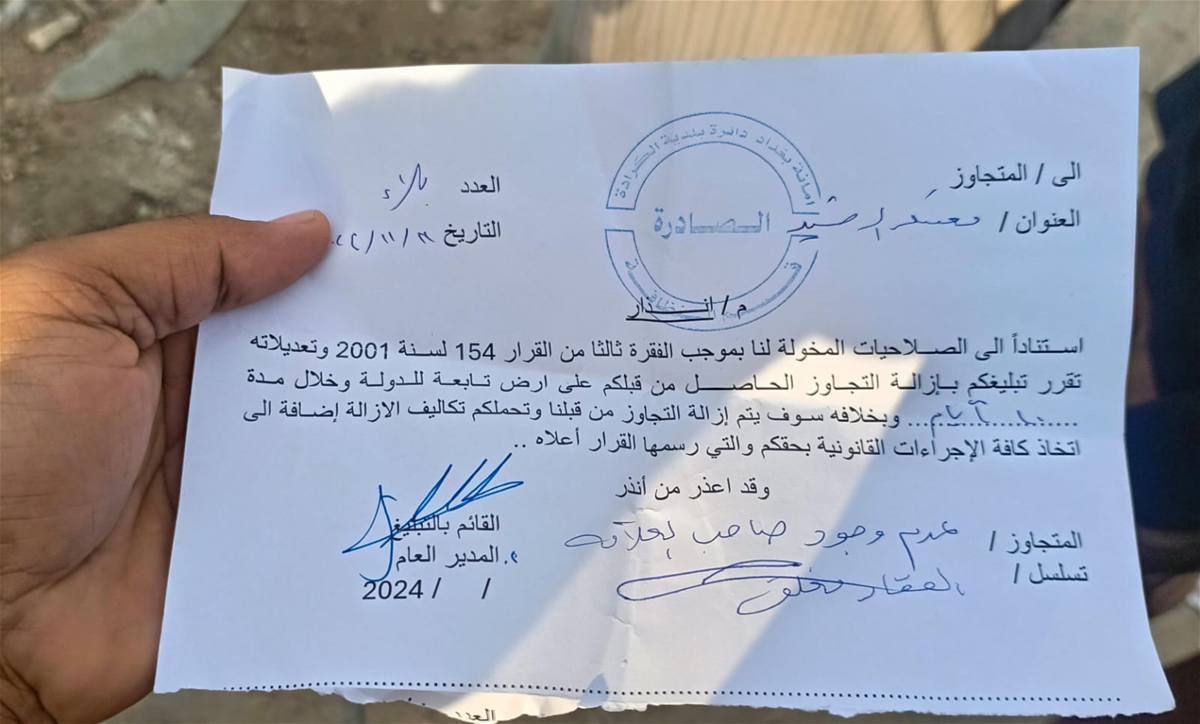 امانة بغداد دائرة بلدية الكرادة
الـصـادرة
الى / المتجاوز
العنوان / معسكر الرشيد
العدد بلا
التاريخ
م / انـــــذار
استناداً الى الصلاحيات المخولة لنا بموجب الفقرة ثالثا من القرار 154 لسنة 2001 وتعديلاته
تقرر تبليغكم بإزالة التجاوز الحاصل من قبلكم على ارض تابعة للدولة وخلال مدة
أيام... وبخلافه سوف يتم إزالة التجاوز من قبلنا وتحملكم تكاليف الازالة إضافة الى
اتخاذ كافة الإجراءات القانونية بحقكم والتي رسمها القرار أعلاه ..
وقد اعذر من أنذر
المتجاوز / عدم وجود صاحب العلاقة
تسلسل / العقار مغلق
القائم بالتبليغ
م. المدير العام
/ / 2024
العدد